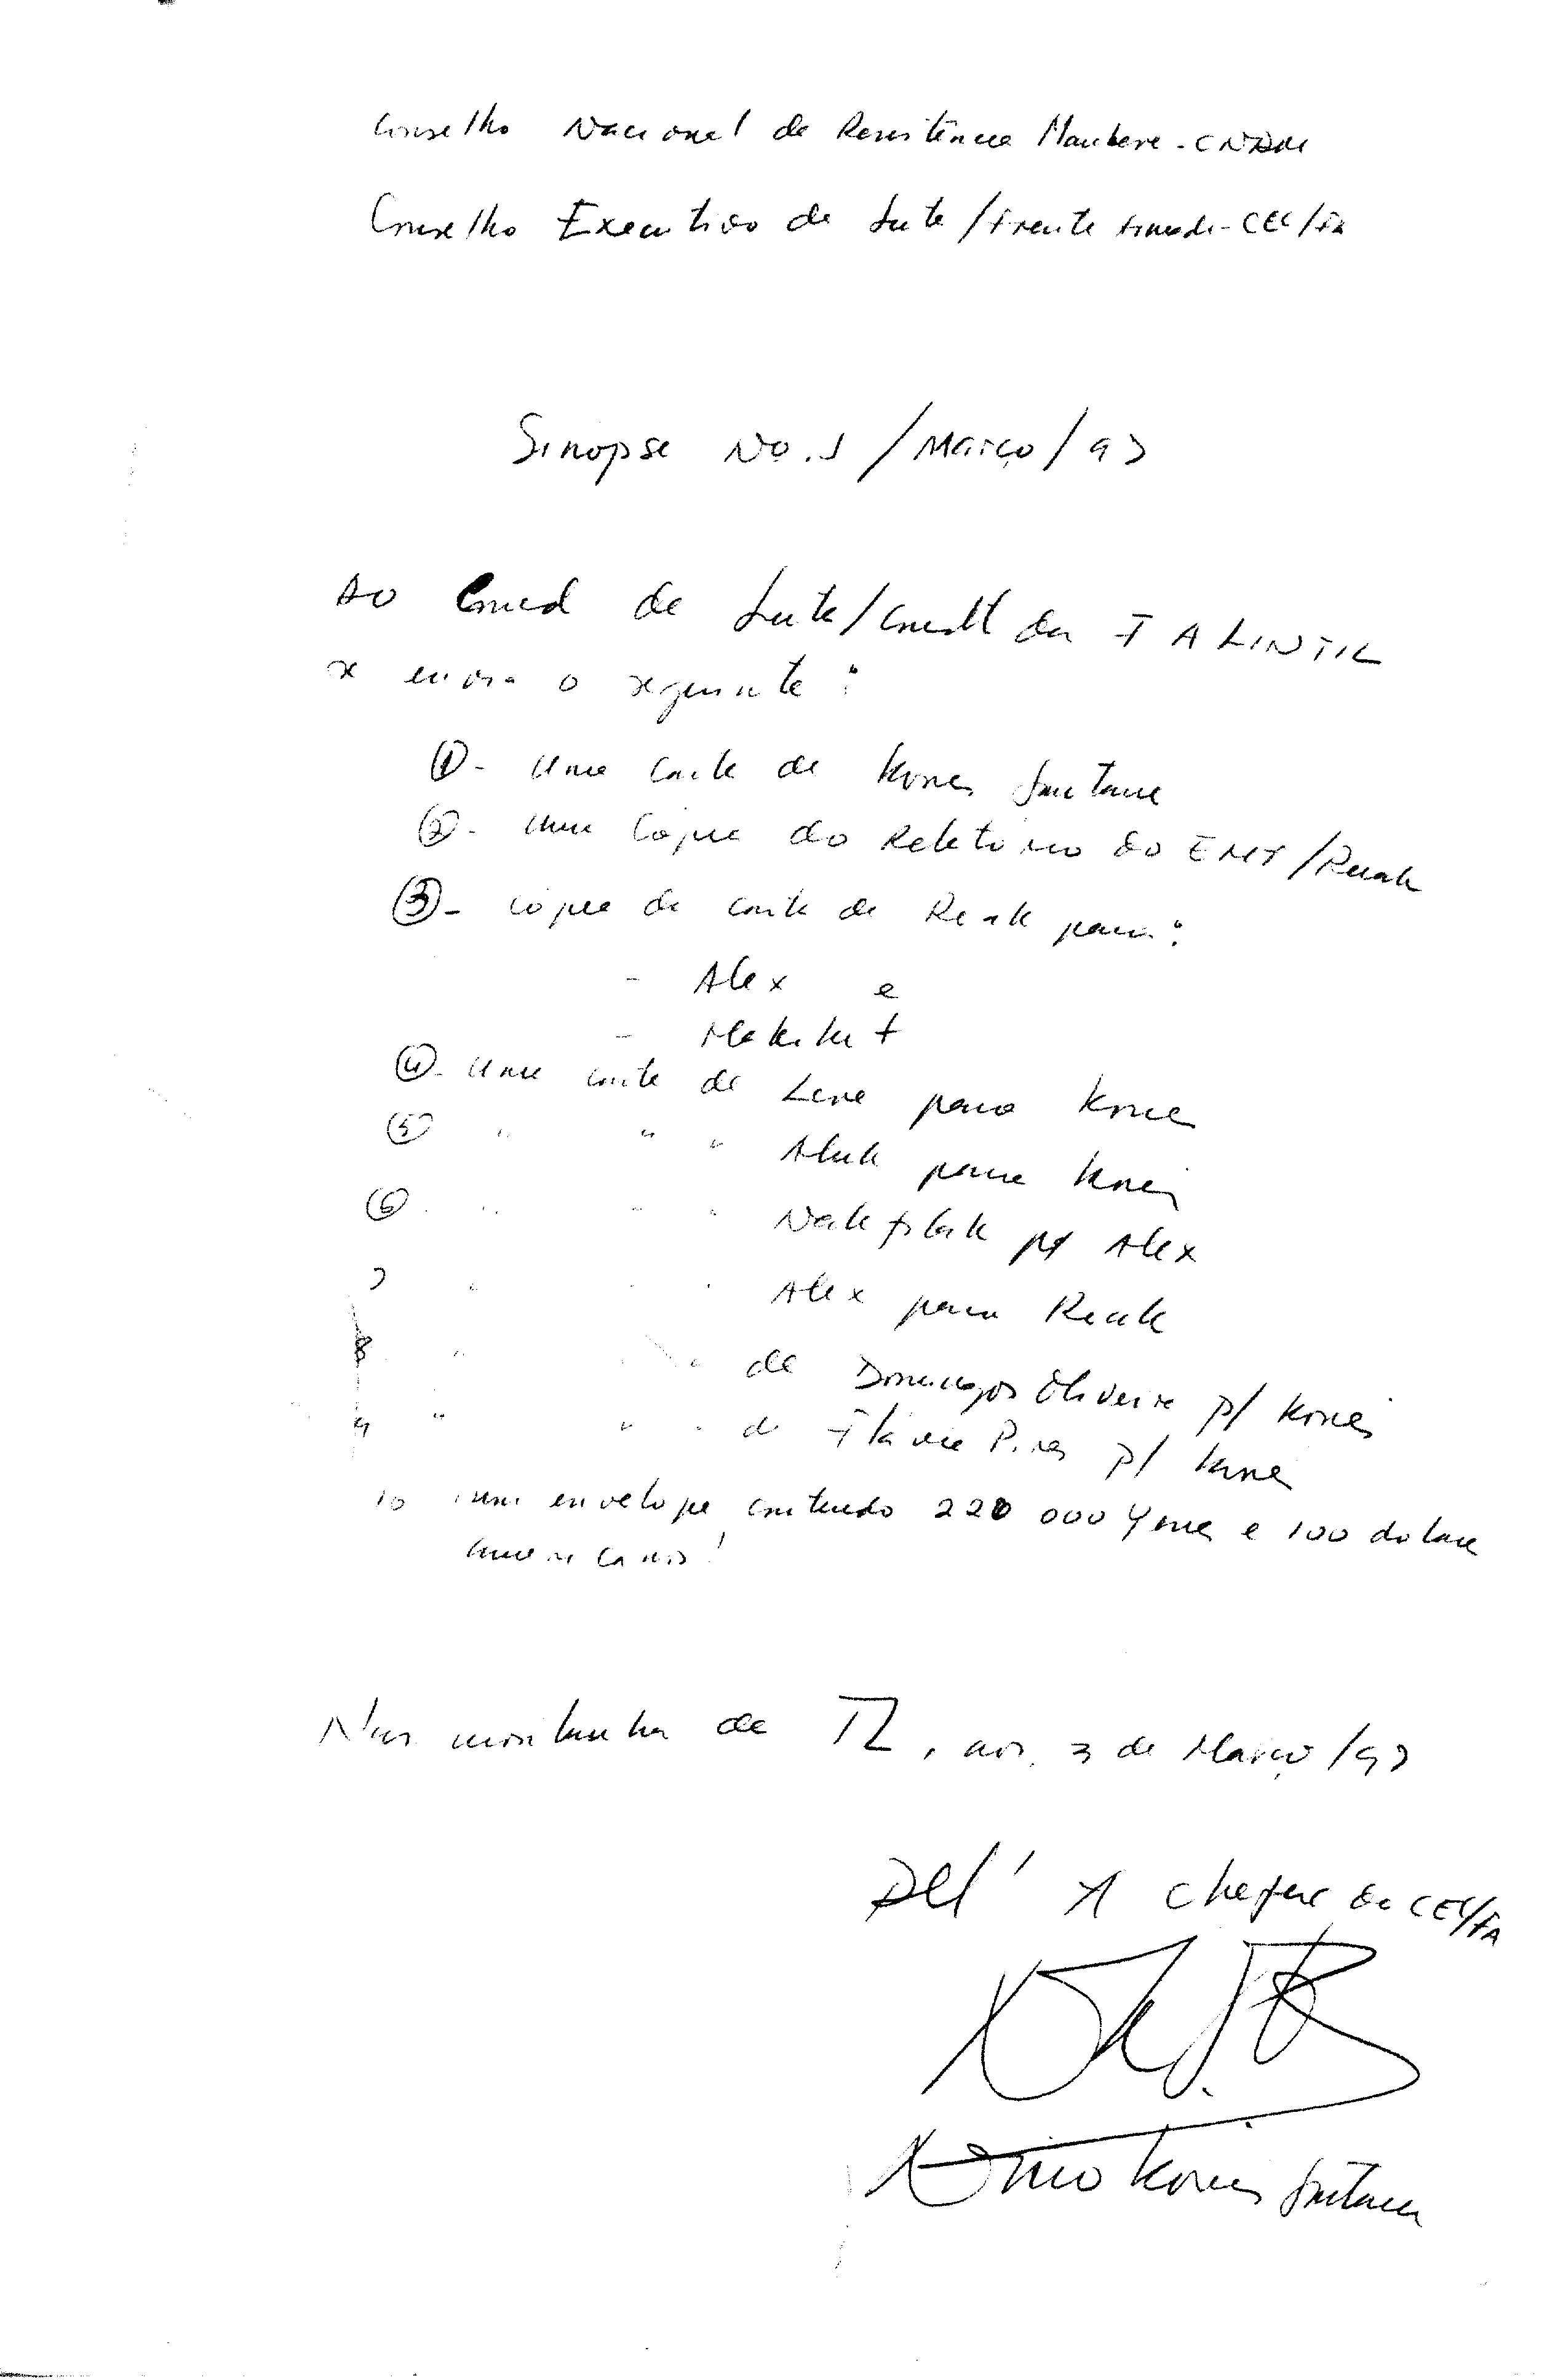 Conselho Nacional de Resistência Maubere - CNRM
Conselho Executivo de Luta/Frente Armada - CEL/FA
Sinopse No. 1/Março/97
Ao Comd de Luta/Comdt da FALINTIL
se envia o seguinte:
① - Uma carta de Konis Santana
② - Uma cópia do Relatório do EMF/Ruak
③ - cópia da carta de Ruak para:
- Alex e
- Makikit
④ - Uma carta de Lere para Konis
⑤ " " " Aluk para Konis
⑥ " " " p/ Alex
7 " " " Alex para Ruak
8 " " " de Domingos Oliveira p/ Konis
9 " " " de Flávia Pires p/ Konis
10 um envelope contendo 220 000 Yenes e 100 dolares
americanos!
Nas montanhas de TL, aos, 3 de Março/97
Pel' A Chefia do CEL/FA
Nino Konis Santana